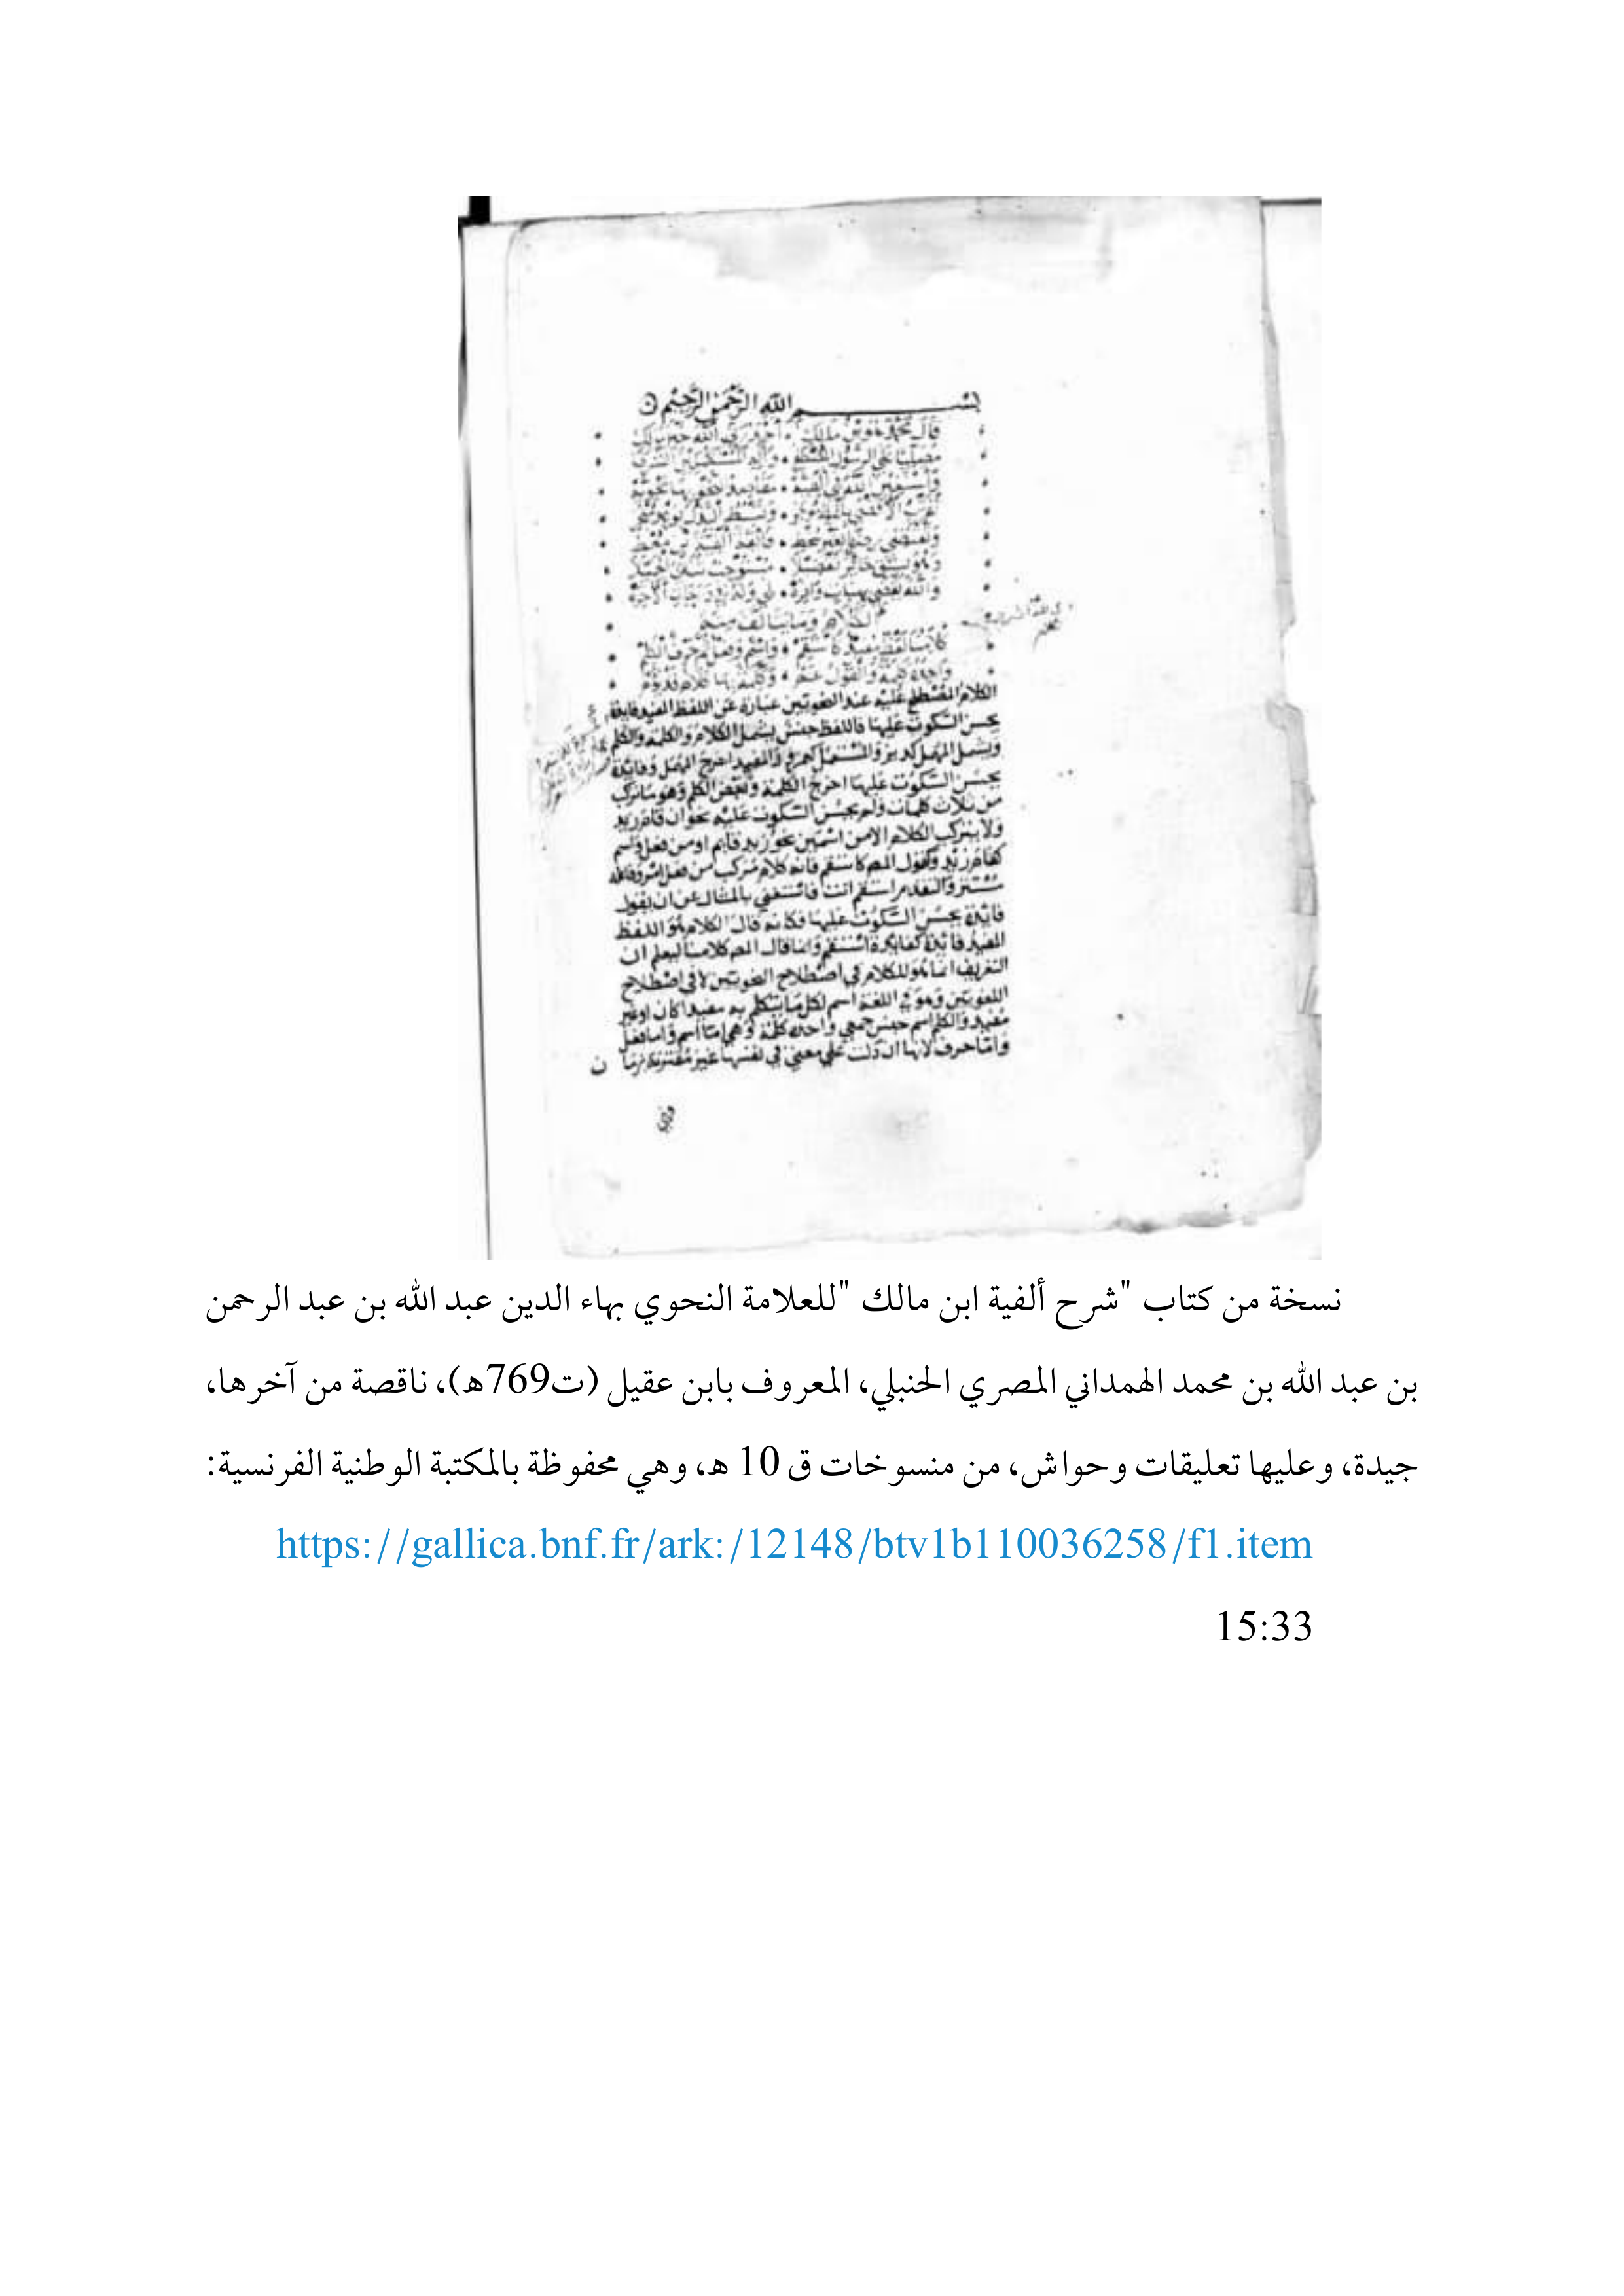 بسم الله الرحمن الرحيم
قال محمد هو ابن مالك • أحمد ربي الله خير مالك
مصليا على الرسول المصطفى • وآله المستكملين الشرفا
وأستعين الله في ألفيه • مقاصد النحو بها محويه
تقرب الأقصى بلفظ موجز • وتبسط البذل بوعد منجز
وتقتضي رضى بغير سخط • فائقة ألفية ابن معط
وهو بسبق حائز تفضيلا • مستوجب ثنائي الجميلا
والله يقضي بهبات وافره • لي وله في درجات الآخره
الكلام وما يتألف منه
كلامنا لفظ مفيد كاستقم • واسم وفعل ثم حرف الكلم
واحده كلمة والقول عم • وكلمة بها كلام قد يؤم
الكلام المصطلح عليه عند النحويين عبارة عن اللفظ المفيد فايدة
يحسن السكوت عليها فاللفظ جنس يشمل الكلام والكلمة والكلم
ويشمل المهمل كديز والمستعمل كعمرو والمفيد اخرج المهمل وفايدة
يحسن السكوت عليها اخرج الكلمة وبعض الكلم وهو ما تركب
من ثلاث كلمات ولم يحسن السكوت عليه نحو ان قام زيد
ولا يتركب الكلام الا من اسمين نحو زيد قايم او من فعل واسم
كقام زيد وكقول المص كاستقم فانه كلام مركب من فعل امر وفاعله
مستتر والتقدير استقم انت فاستغنى بالمثال عن ان يقول
فايدة يحسن السكوت عليها فكانه قال الكلام هو اللفظ
المفيد فايدة كفايدة استقم وانما قال المص كلامنا ليعلم ان
التعريف انما هو للكلام في اصطلاح النحويين لا في اصطلاح
اللغويين وهو في اللغة اسم لكل ما يتكلم به مفيدا كان او غير
مفيد والكلم اسم جنس جمعي واحده كلمة وهي اما اسم واما فعل
واما حرف لانها ان دلت على معنى في نفسها غير مقترنة بزما ن
نسخة من كتاب "شرح ألفية ابن مالك "للعلامة النحوي بهاء الدين عبد الله بن عبد الرحمن
بن عبد الله بن محمد الهمداني المصري الحنبلي، المعروف بابن عقيل (ت769ه)، ناقصة من آخرها،
جيدة، وعليها تعليقات وحواش، من منسوخات ق 10 ه، وهي محفوظة بالمكتبة الوطنية الفرنسية:
https://gallica.bnf.fr/ark:/12148/btv1b110036258/f1.item
15:33